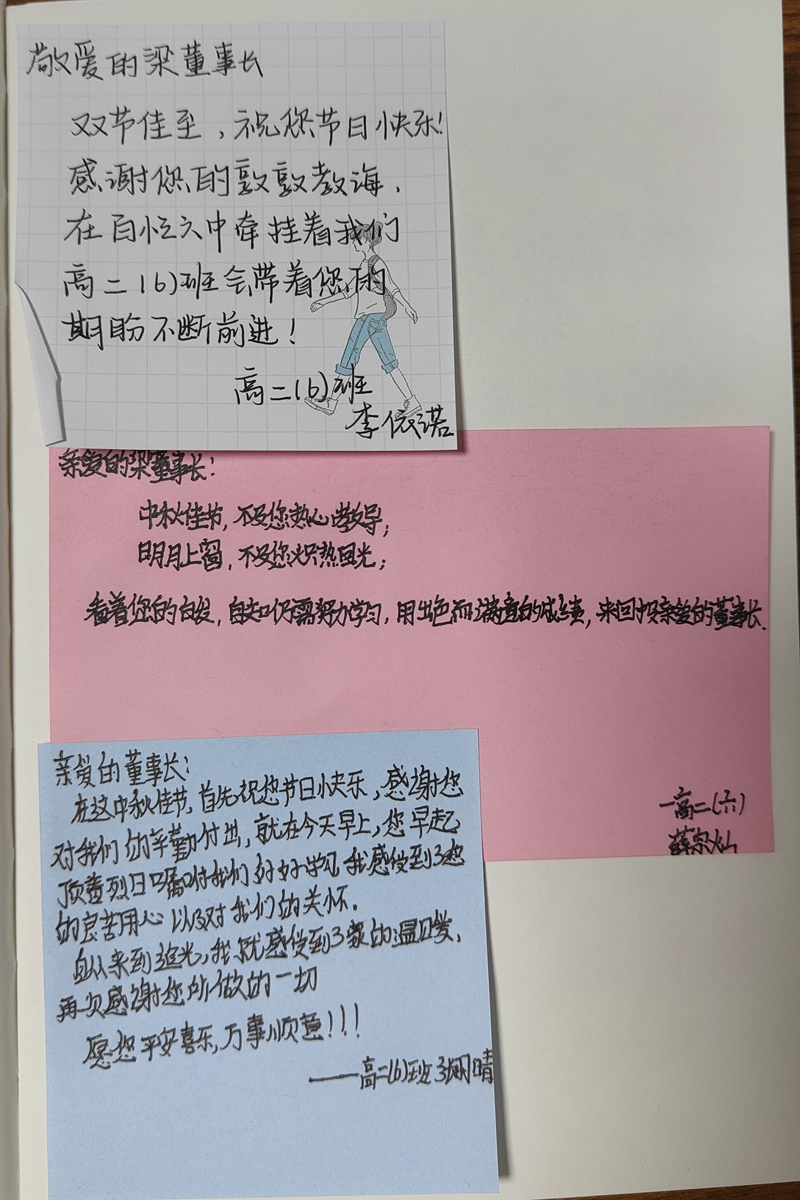 敬爱的梁董事长
双节佳至，祝您节日快乐！
感谢您的敦敦教海．
在百忙之中牵挂着我们
高二（6）班会带着您的
期盼不断前进！
高二（6）班
李依诺
亲爱的梁董事长：
中秋佳节，不及您热心教导；
明月上窗，不及您炽热目光；
看着您的白发，自知仍需努力学习，用出色而满意的成绩，来回报亲爱的董事长．
—高二（六）
薛宗灿
亲爱的董事长：
在这中秋佳节，首先祝您节日快乐，感谢您
对我们的辛勤付出，就在今天早上，您早起
顶着烈日嘱咐我们好好学习 我感受到了您
的良苦用心 以及对我们的关怀．
自从来到追光，我就感受到了家的温暖，
再次感谢您所做的一切
愿您平安喜乐，万事顺意！！！
——高二（6）班 张明晴